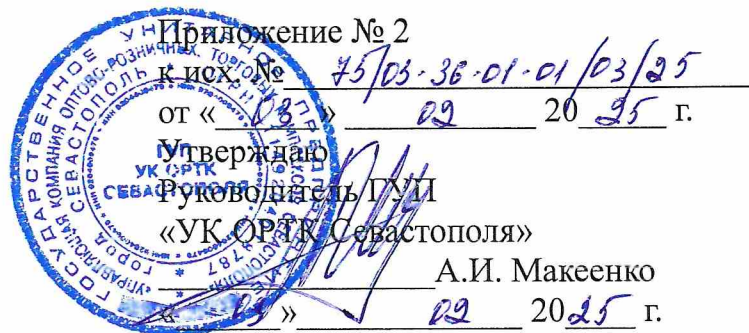 Приложение № 2
к исх. № 75/03-36-01-01/03/25
от « 03 » 02 20 25 г.
Утверждаю
Руководитель ГУП
«УК ОРТК Севастополя»
А.И. Макеенко
« 03 » 02 20 25 г.
ГОСУДАРСТВЕННОЕ УНИТАРНОЕ ПРЕДПРИЯТИЕ
«УПРАВЛЯЮЩАЯ КОМПАНИЯ ОПТОВО-РОЗНИЧНЫХ ТОРГОВЫХ
ГОРОД СЕВАСТОПОЛЬ
ГУП
УК ОРТК
СЕВАСТОПОЛЯ